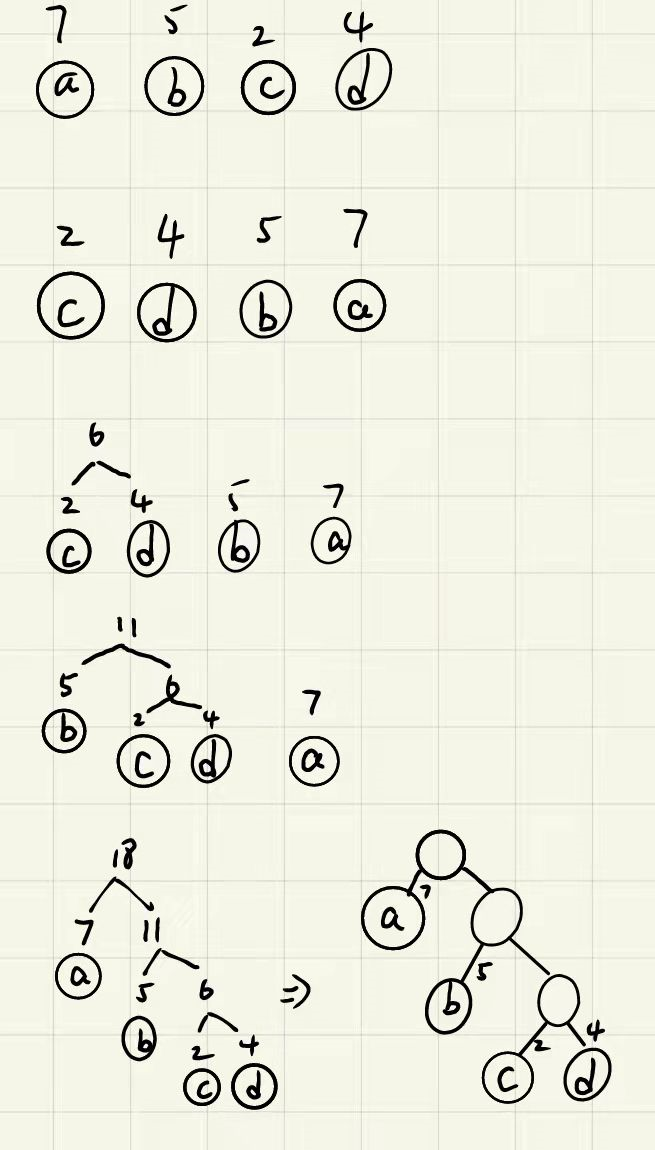 7 5 2 4
a b c d
2 4 5 7
c d b a
6
2 4 5 7
c d b a
11
5 6 7
2 4
b c d a
18
7 11
a 7
5 6 a
b 5
2 4 b
c d 2 4
c d
⇒